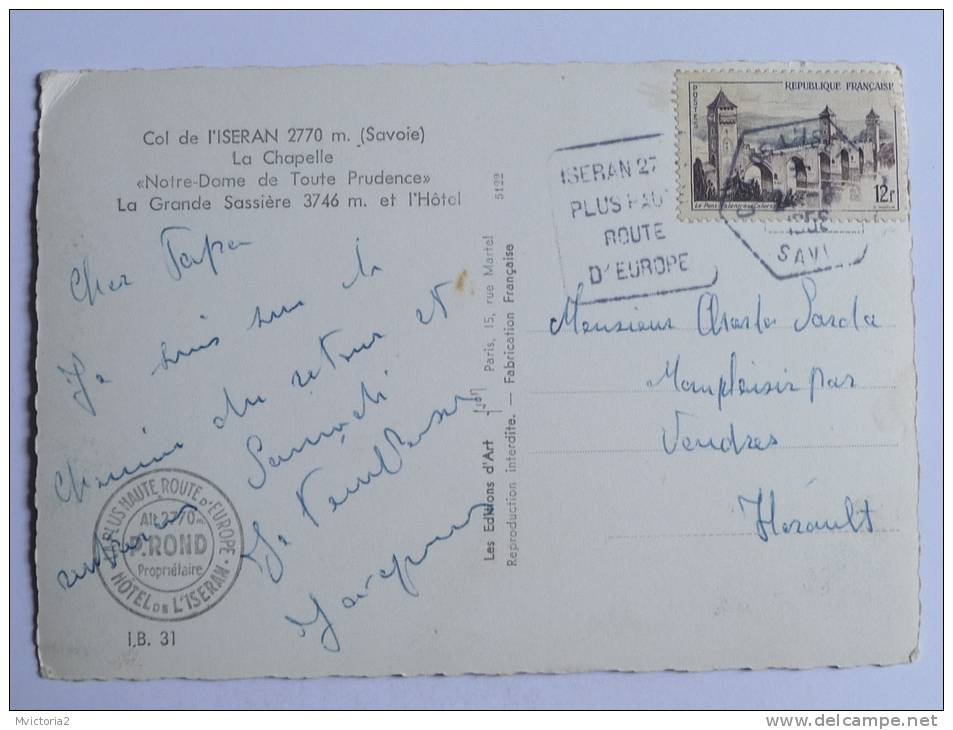 Col de l'ISERAN 2770 m. (Savoie)
La Chapelle
«Notre-Dame de Toute Prudence»
La Grande Sassière 3746 m. et l'Hôtel
Cher Papa
Je suis sur le
chemin du retour et
rentrerai Samedi
Je t'embrasse
Jacques
LA PLUS HAUTE ROUTE D'EUROPE
Alt. 2770 m.
P. ROND
Propriétaire
HÔTEL DE L'ISERAN
I.B. 31
5122
Les Editions d'Art Yvon Paris, 15, rue Martel
Reproduction interdite. — Fabrication Française
ISERAN 27
PLUS HAU
ROUTE
D'EUROPE
POSTES
REPUBLIQUE FRANÇAISE
Le Pont Valentré Cahors
12F
SAV
Monsieur Charles Sarda
Monplaisir par
Vendres
Hérault
Mvictoria2
delcampe.net